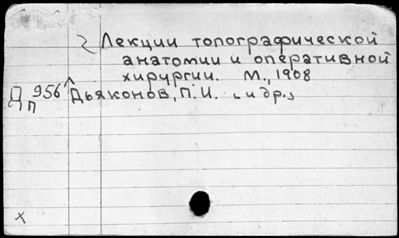 Лекции топографической
анатомии и оперативной
хирургии. М., 1908
Д 956 Дьяконов, П.И. [и др.]
п
х